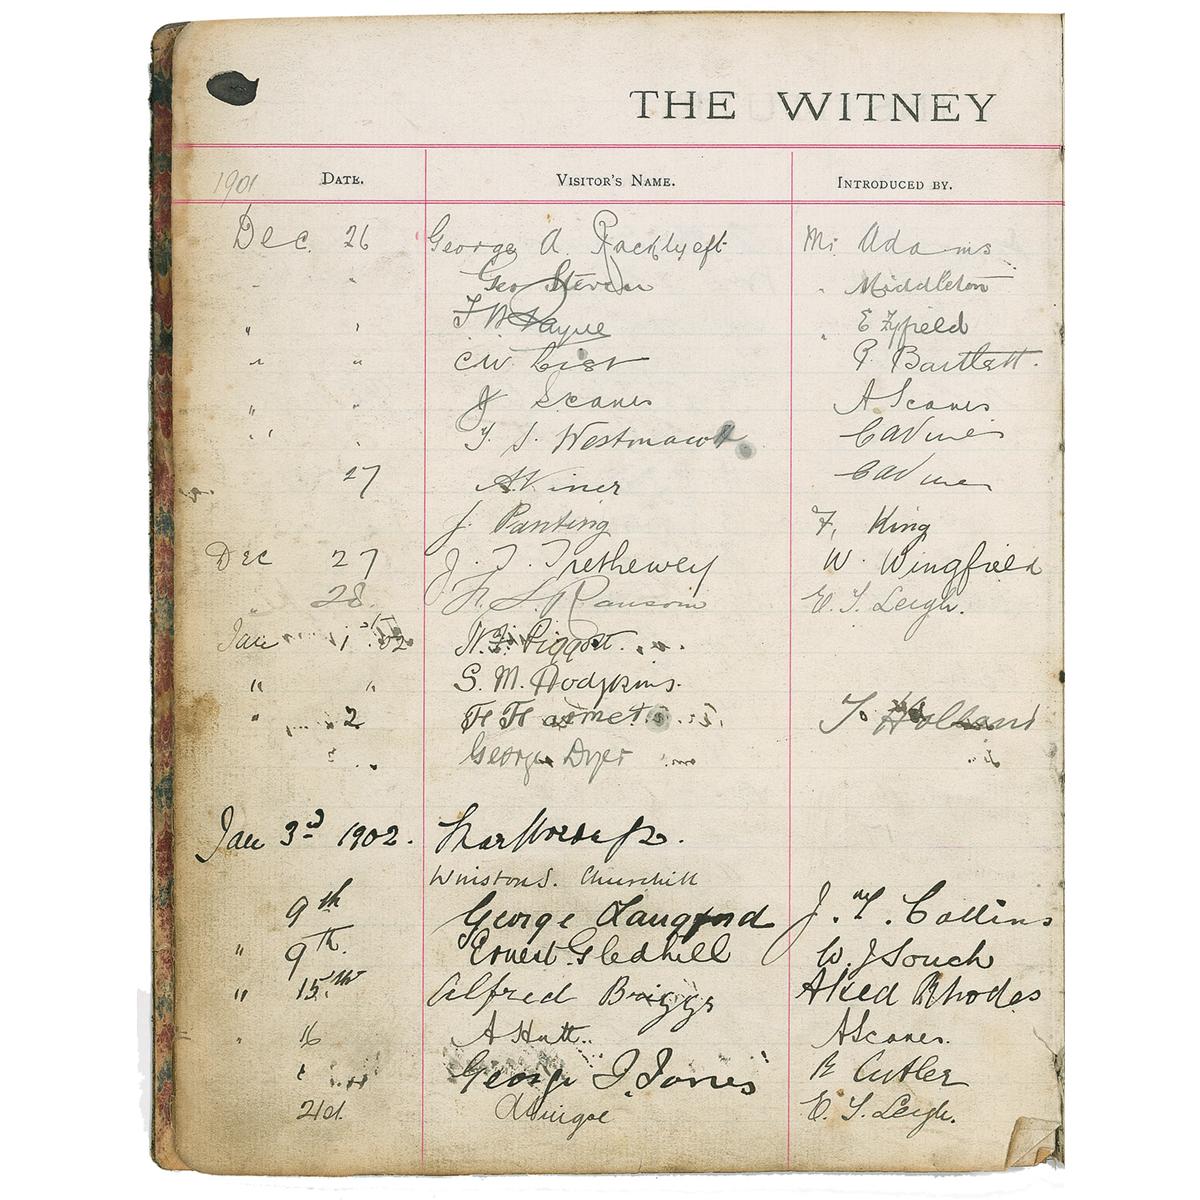 THE WITNEY
1901 DATE. VISITOR'S NAME. INTRODUCED BY.
Dec 26 George A Racklyeft Mr Adams
" Geo Steven " Middleton
" " F W Payne " E Fyfield
" " C W List P. Bartlett.
" " J Scanes A Scanes
" " T. S. Westmacott
27 A Viner
J. Panting F, King
Dec 27 J. T. Trethewey W. Wingfield
" 28. Ransom E. T. Leigh.
Jan 1st 02 W. F. Piggott.
" " S. M. Hodgkins.
" 2 T. Holland
George Dyer
Jan 3rd 1902.
Winston S. Churchill
9th George Langford J. Collins
" 9th Ernest Gledhill W. J Souch
" 15th Alfred Briggs Alfred Rhodes
" 16 A Hutt. A Scanes.
George J. Jones Cutler
21st E. T. Leigh.